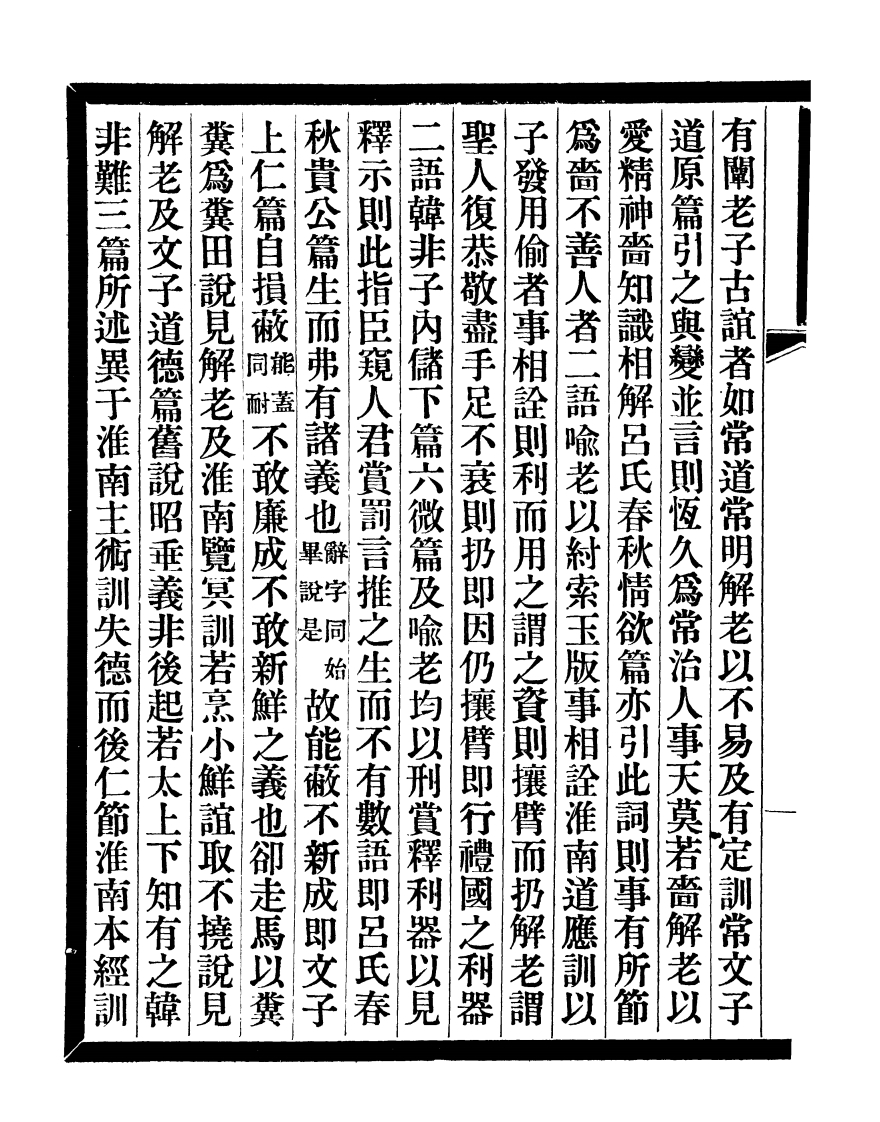 有闡老子古誼者如常道常明解老以不易及有定訓常文子
道原篇引之與變並言則恆久爲常治人事天莫若嗇解老以
愛精神嗇知識相解呂氏春秋情欲篇亦引此詞則事有所節
爲嗇不善人者二語喩老以紂索玉版事相詮淮南道應訓以
子發用偷者事相詮則利而用之謂之資則攘臂而扔解老謂
聖人復恭敬盡手足不衰則扔即因仍攘臂即行禮國之利器
二語韓非子內儲下篇六微篇及喩老均以刑賞釋利器以見
釋示則此指臣窺人君賞罰言推之生而不有數語即呂氏春
秋貴公篇生而弗有諸義也辭字同始畢說是故能蔽不新成即文子
上仁篇自損蔽能蓋同耐不敢廉成不敢新鮮之義也卻走馬以糞
糞爲糞田說見解老及淮南覽冥訓若烹小鮮誼取不撓說見
解老及文子道德篇舊說昭垂義非後起若太上下知有之韓
非難三篇所述異于淮南主術訓失德而後仁節淮南本經訓